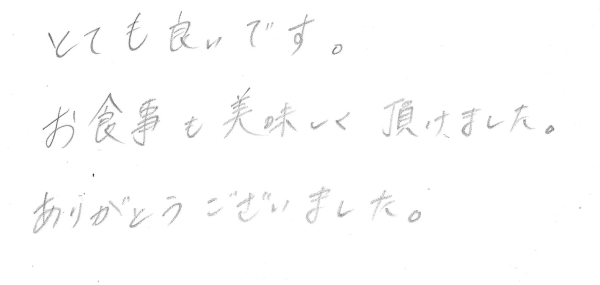 とても良いです。
お食事も美味しく頂けました。
ありがとうございました。